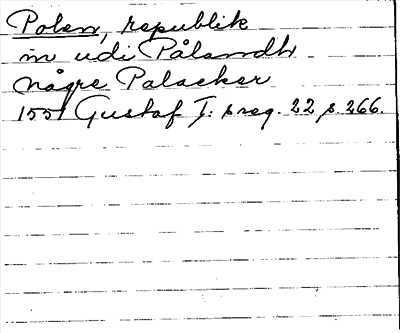 Polen, republik
in udi Pålandh
någre Palacker
1551 Gustaf I: s reg. 22 s. 266.